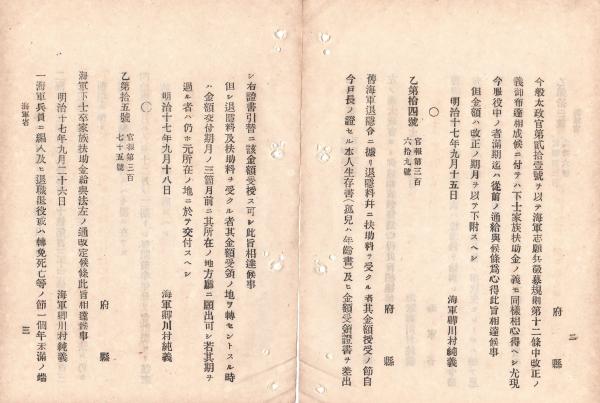 二
府縣
今般太政官第貳拾壹號ヲ以テ海軍志願兵徵募規則第十二條中改正ノ
義御布達相成候ニ付テハ下士家族扶助金ノ義モ同樣相心得ヘシ尤現
今服役中ノ者滿期迄ハ從前ノ通給與候條爲心得此旨相達候事
但金額ハ改正ノ期月ヲ以テ下附スヘシ
明治十七年九月十五日
海軍卿川村純義
〇
乙第拾四號
官報第三百六拾九號
府縣
舊海軍退隱令ニ據リ退隱料幷ニ扶助料ヲ受クル者其金額授受ノ節自
今戸長ノ證セル本人生存書(孤兒ハ年齡書)及ヒ金額受領證書ヲ差出
シ右證書引替ニ該金額受授ス可シ此旨相達候事
但シ退隱料及扶助料ヲ受クル者其金額受領ノ地ヲ轉セントスル時
ハ金額交付期月ノ三箇月前ニ其所在ノ地方廳ニ願出可シ若其期ヲ
過ル者ハ仍ホ元所在ノ地ニ於テ交付スヘシ
明治十七年九月十八日
海軍卿川村純義
〇
乙第拾五號
官報第三百七十五號
府縣
海軍下士卒家族扶助金給與法左ノ通改定候條此旨相達候事
明治十七年九月二十六日
海軍卿川村純義
一海軍兵員ニ編入及ヒ退職退役或ハ轉免死亡等ノ節一個年未滿ノ端
海軍省
三